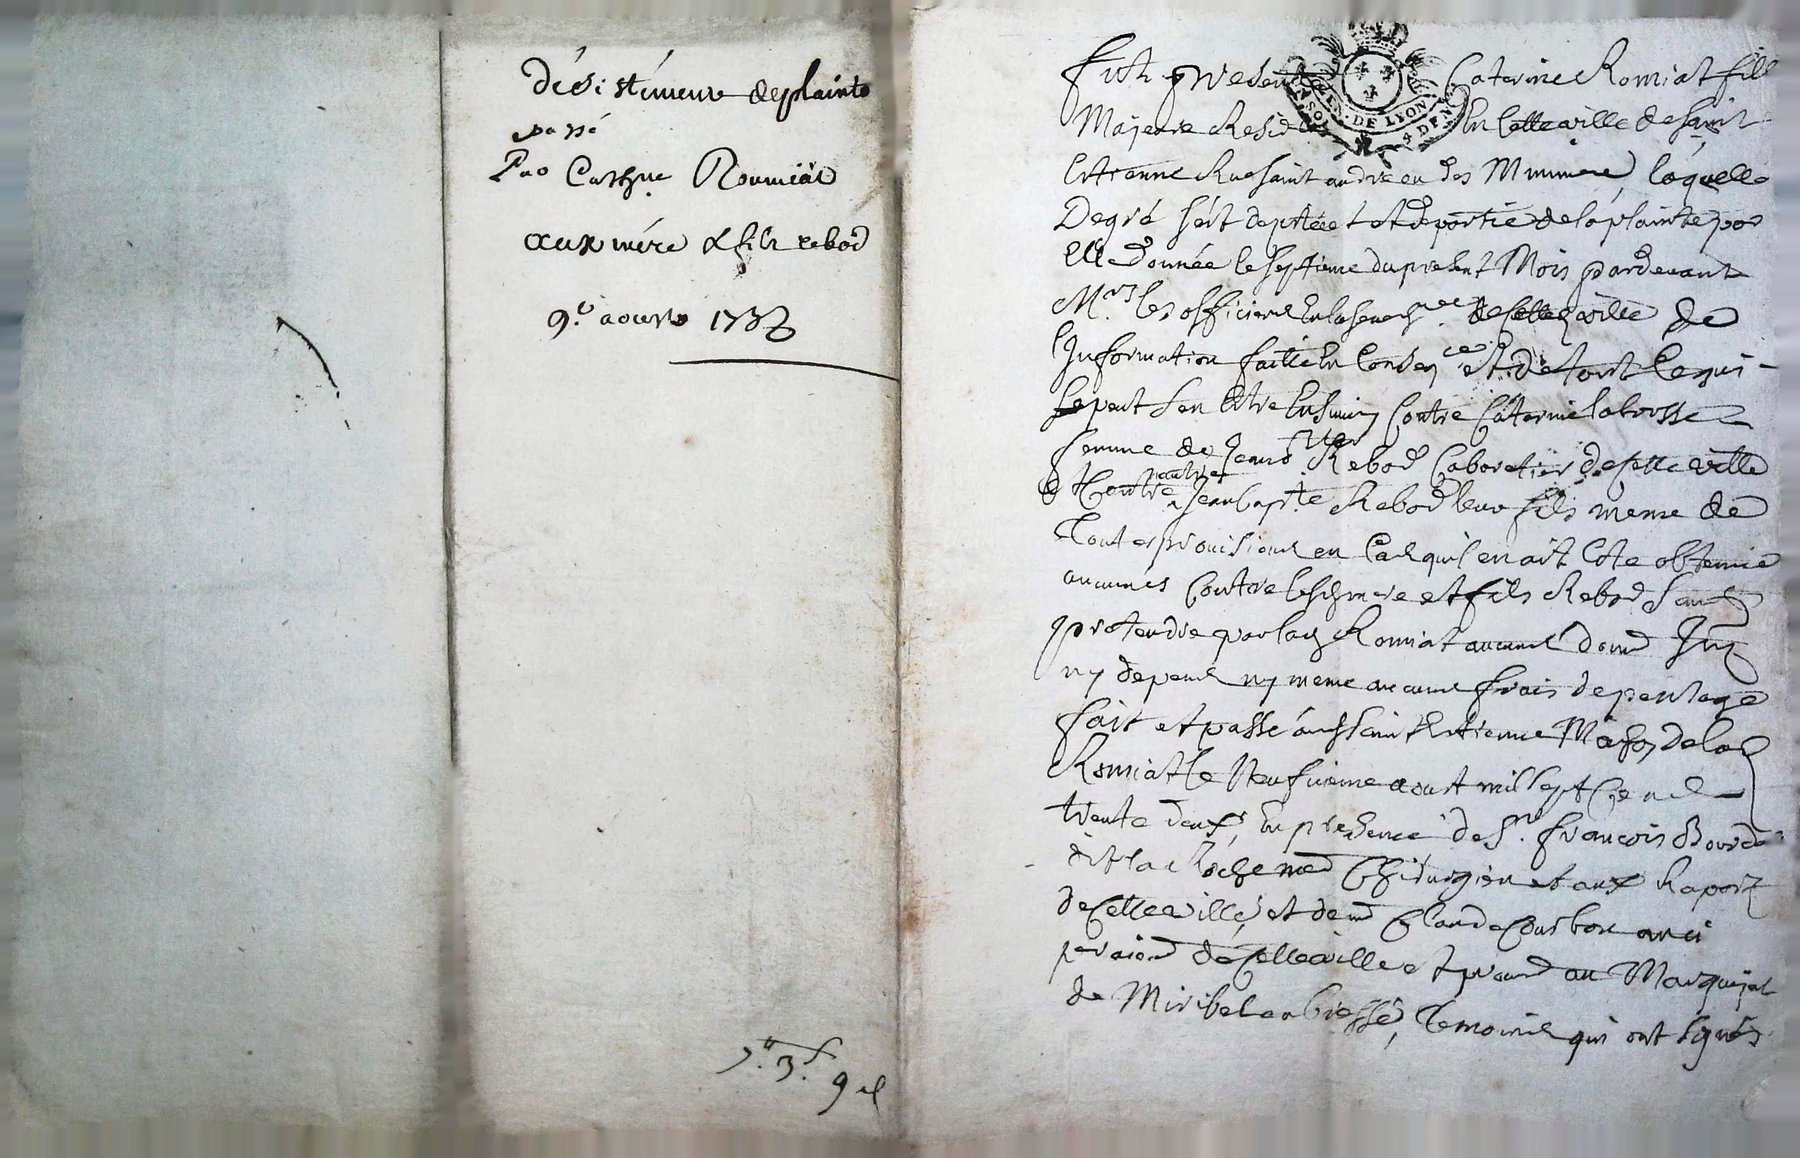 Désistement de plainte
passé
Par Catherine Roumiat
aux mère & fils rebod
9.e aoust 1732
Fut presente Caterine Romiat fille
Majeure Reside en cette ville de saint
Etienne Rue saint andre ou des Minimes, laquelle
De gré s'est deptéee et departie de la plainte par
Elle donnée le septieme du present Mois pardevant
M.rs les officiers en la senech.ée de cette ville de
l'Information faitte en conseq.ce et de tout ce qui
se peut s'en Etre Ensuivy Contre Caterine labrosse
femme de Jean Rebod Cabaretier de cette ville
et Contre autre Jean bap.te Rebod leur fils meme de
Toutes provisions en Cas quil en ait Eté obtenue
aucunes Contre lesd mere et fils Rebod sans
pretendre par lad Romiat aucuns dom Int
ny depens ny meme aucuns frais de pensage
fait et passé aud saint Etienne Maison de lad
Romiat le Neufvieme aoust mil sept Cens
trente deux, En presence de S.r francois Bourd
dit la Roche me Chirurgien et aux Raports
de Cette ville, et de me Claude Courbon
de Cette ville et au Marquisat
de Miribel en bresse, Temoins qui ont signés